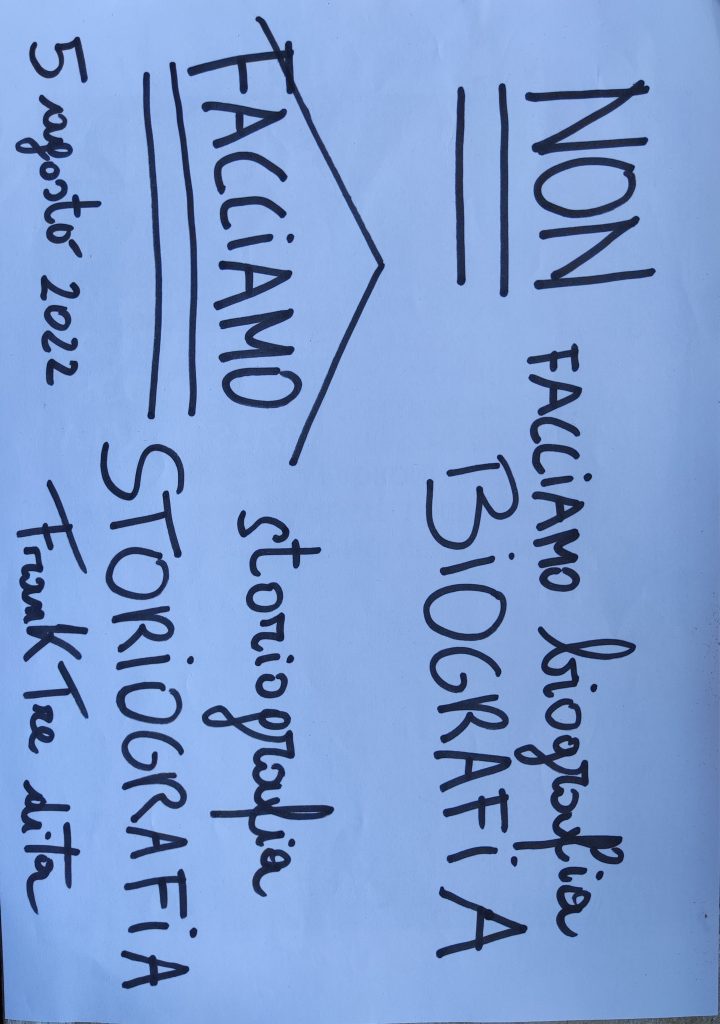 NON FACCIAMO biografia
BiOGRAFiA
FACCiAMO storiografia
STORiOGRAFiA
5 agosto 2022 FranK Tre dita